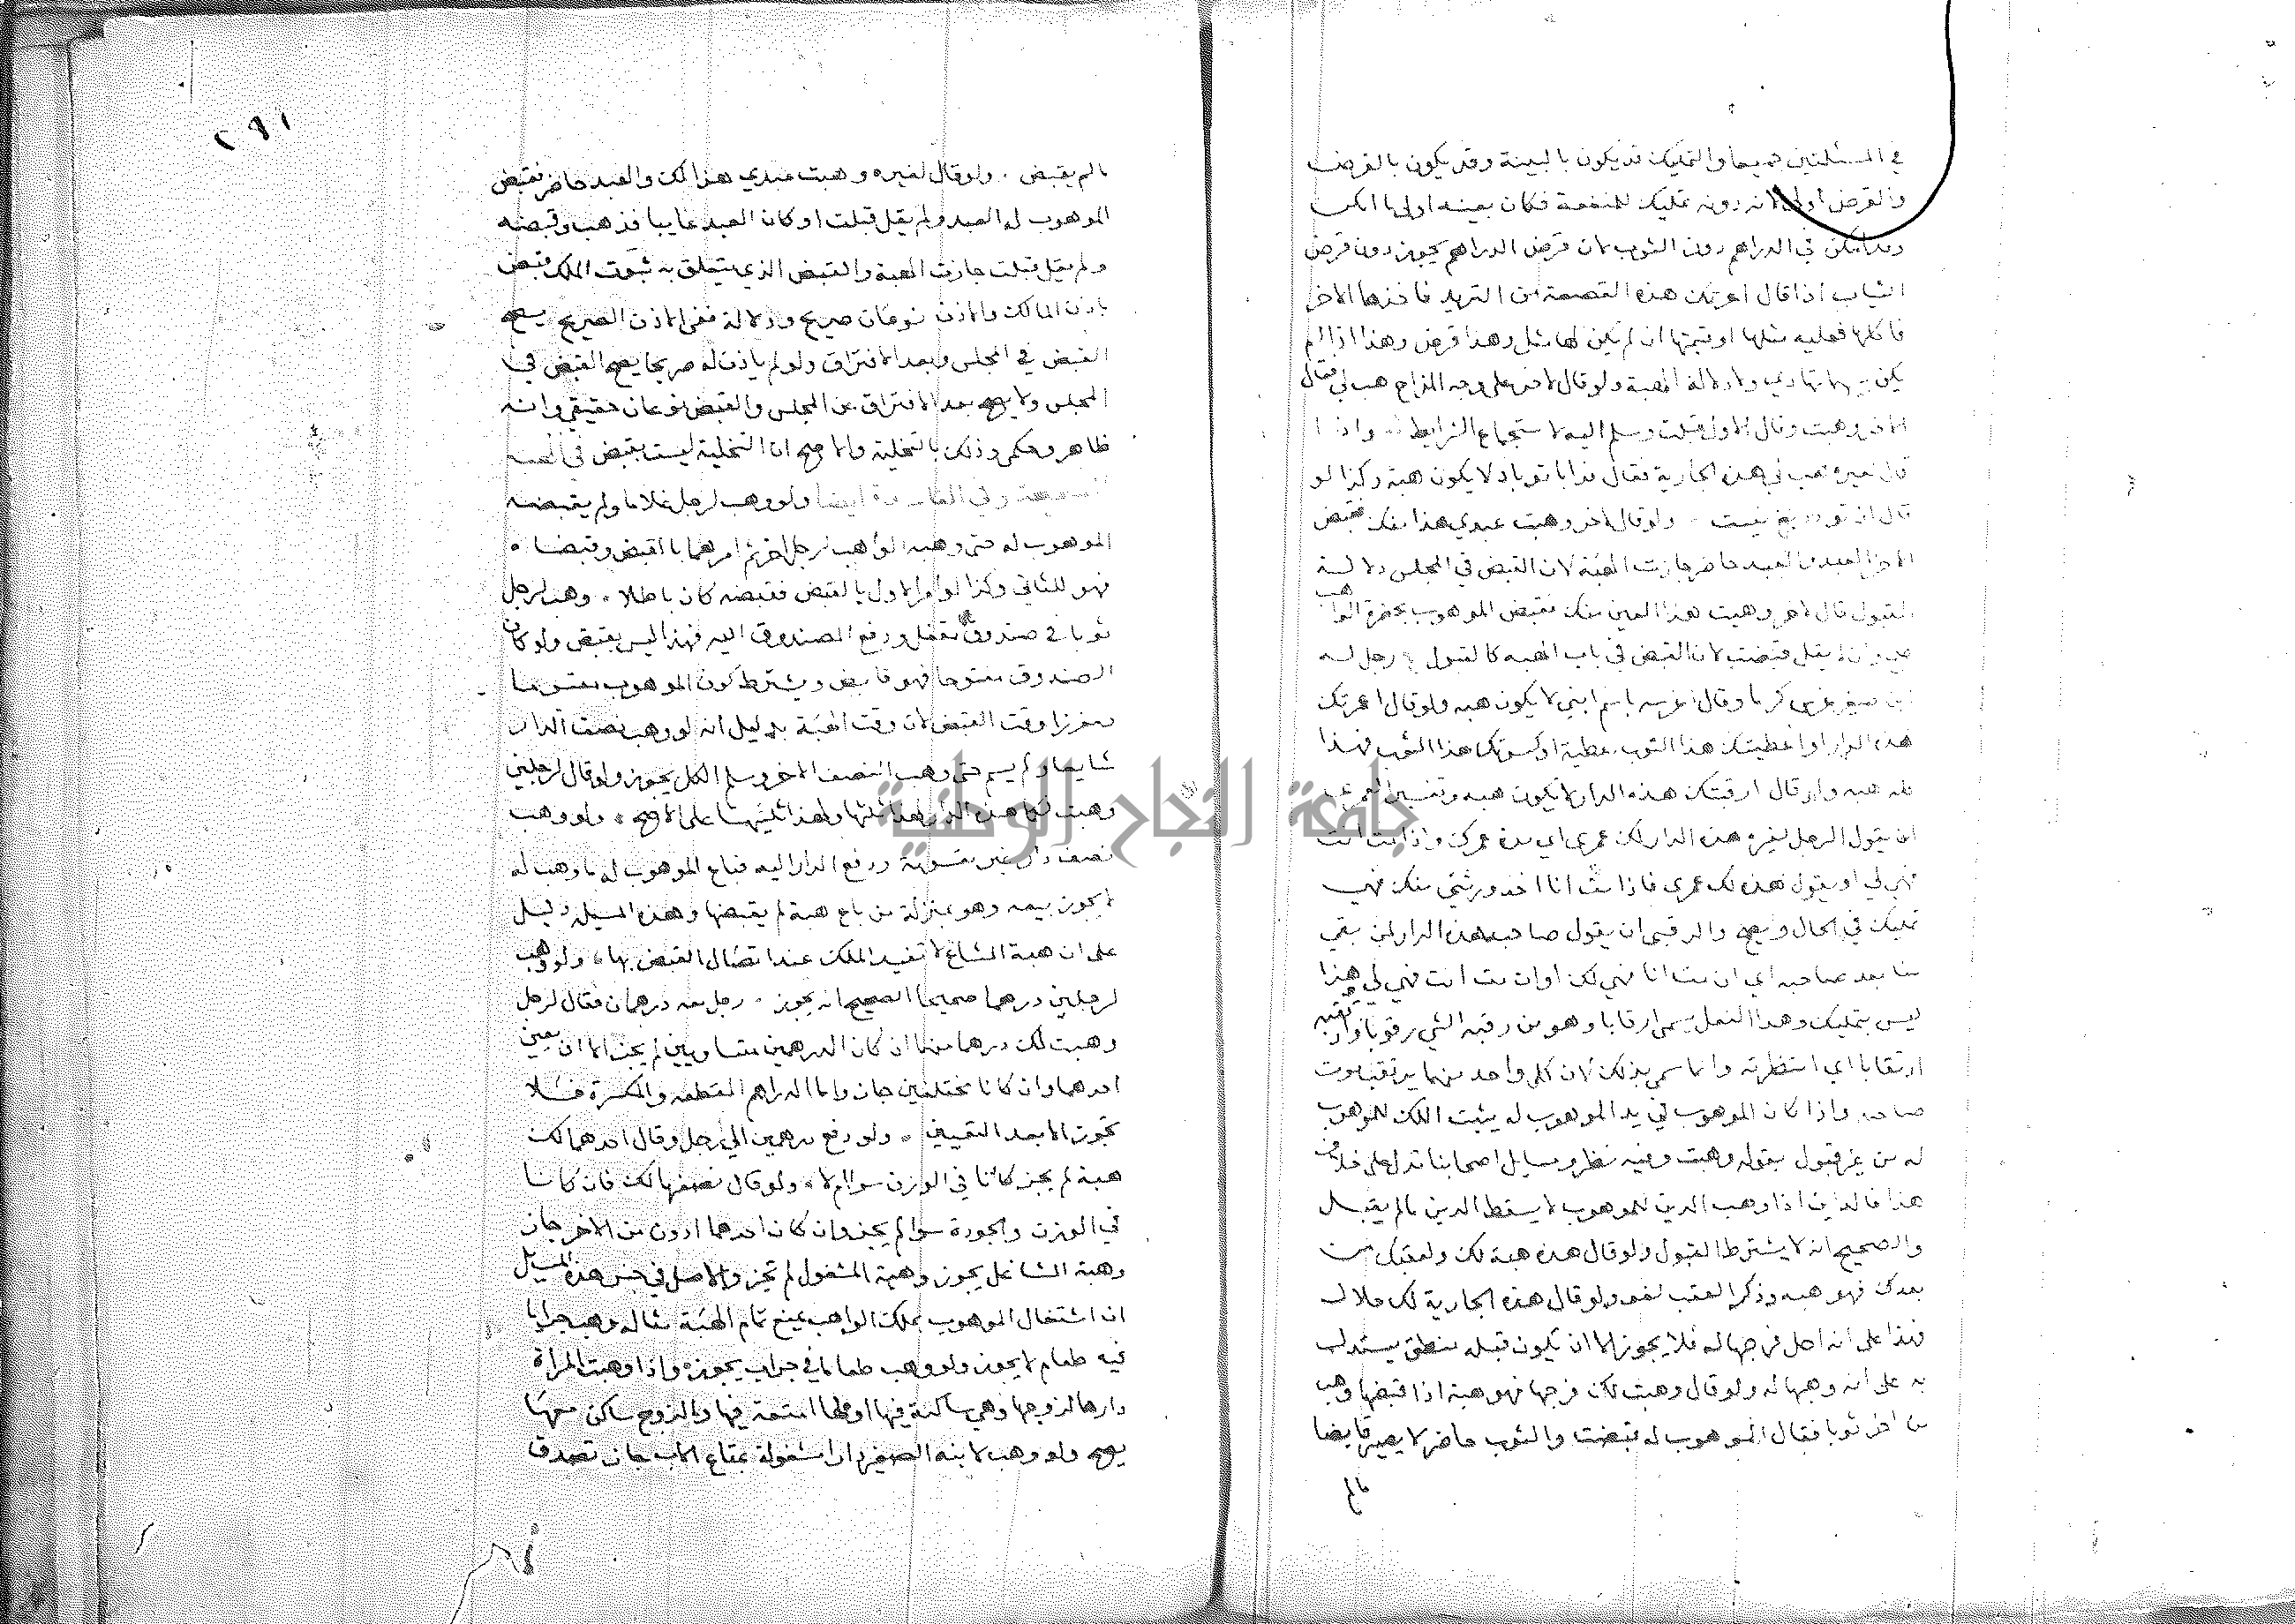 في المسئلتين جميعا والتمليك قد يكون بالهبة وقد يكون بالقرض
والقرض اولى لانه دونه تمليك للمنفعة فكان بعينه اولى ما امكن
وقد امكن في الدراهم دون الثوب لان قرض الدراهم يجوز دون قرض
الثياب اذا قال اعرتك هذه القصعة من الثريد فاخذها الاخر
فاكلها فعليه مثلها او قيمتها ان لم يكن لها مثل وهذا قرض وهذا اذا لم
يكن بينهما ولا دلالة الهبة ولو قال لاخر على وجه المزاح هب لي فقال
الاخر وهبت وقال الاول قبلت وسلم اليه لاستجماع الشرايط واذا
قال لغيره هب لي هذه الجارية فقال لا يكون هبة وكذا لو
قال ولو قال لاخر وهبت عبدي هذا منك فقبض
الاخر العبد والعبد حاضر جازت الهبة لان القبض في المجلس دلالة
القبول قال لاخر وهبت هذا العين منك فقبض الموهوب بحضرة الواهب
صح وان لم يقل قبضت لان القبض في باب الهبة كالقبول رجل له
ابن صغير غرس كرما وقال اغرسه باسم ابني لا يكون هبه ولو قال اعمرتك
هذه الدار او اعطيتك هذا الثوب عطية او كسوتك هذا الثوب فهذا
كله هبه ولو قال ارقبتك هذه الدار لا يكون هبه وتفسير العمرى
ان يقول الرجل لغيره هذه الدار لك عمرى اي مدة عمرك واذا مت انت
فهي لي او يقول هذه لك عمري فاذا مت انا اخذ ورثتي منك فهي
تمليك في الحال ويصح والرقبى ان يقول صاحب هذه الدار لمن بقي
منا بعد صاحبه اي ان مت انا فهي لك او ان مت انت فهي لي هذا
ليس بتمليك وهذا الفعل يسمى ارقابا وهو من رقبه الشي رقوبا وارتقبه
ارتقابا اي انتظرته وانما سمي بذلك لان كل واحد منهما يرتقب موت
صاحبه واذا كان الموهوب في يد الموهوب له يثبت الملك للموهوب
له من غير قبول بقوله وهبت وفيه نظر ومسايل اصحابنا تدل على خلاف
هذا فالدين اذا وهب الدين للموهوب لا يسقط الدين مالم يقبل
والصحيح انه لا يشترط القبول ولو قال هذه هبة لك ولعقبك من
بعدك فهو هبه وذكر العقب لغو ولو قال هذه الجارية لك حلال
فهذا على انه احل فرجها له فلا يجوز الا ان تكون قبله منطق يستدل
به على انه وهبها له ولو قال وهبت لك فرجها فهو هبة اذا قبضها وهب
من اخر ثوبا فقال الموهوب له قبضت والثوب حاضر لا يصير قابضا
مالم
٢٩١
مالم يقبض ولو قال لغيره وهبت عبدي هذا لك والعبد حاضر فقبض
الموهوب له العبد ولم يقل قبلت او كان العبد غايبا فذهب وقبضه
ولم يقل قبلت جازت الهبة والقبض الذي يتعلق به ثبوت الملك قبض
باذن المالك والاذن نوعان صريح ودلالة ففي الاذن الصريح يصح
القبض في المجلس وبعد الافتراق ولو لم ياذن له صريحا يصح القبض في
المجلس ولا يصح بعد الافتراق عن المجلس والقبض نوعان حقيقي وانه
ظاهر وحكمي وذلك بالتخلية والاصح ان التخلية ليست بقبض في الهبة
الصحيحة وفي الفاسدة ايضا ولو وهب لرجل غلاما ولم يقبضه
الموهوب له حتى وهبه الواهب لرجل اخر ثم امرهما بالقبض وقبضاه
فهو للثاني وكذا لو امر الاول بالقبض فقبضه كان باطلا وهب لرجل
ثوبا في صندوق مقفل ودفع الصندوق اليه فهذا ليس بقبض ولو كان
الصندوق مفتوحا فهو قابض ويشترط كون الموهوب مقسوما
مفرزا وقت القبض لا وقت الهبة بدليل انه لو وهب نصف الدار
شايعا ولم يسلم حتى وهب النصف الاخر وسلم الكل يجوز ولو قال لرجلين
وهبت لكما هذه الدار لهذا ثلثها ولهذا ثلثيها على الاصح ولو وهب
نصف دار غير مقسومة ودفع الدار اليه فباع الموهوب له ما وهب له
لا يجوز بيعه وهو بمنزلة من باع هبة لم يقبضها وهذه المسيلة دليل
على ان هبة المشاع لا تفيد الملك عند اتصال القبض بها ولو وهب
لرجلين درهما صحيحا الصحيح انه يجوز رجل معه درهمان فقال لرجل
وهبت لك درهما منهما ان كان الدرهمين متساويين لم يجز الا ان يعين
احدهما وان كانا مختلفين جاز واما الدراهم المقطعه والمكسرة فلا
تجوز الا بعد التعيين ولو دفع درهمين الى رجل وقال احدهما لك
هبة لم يجز كانا في الوزن سواء ام لا ولو قال نصفها لك فان كانا
في الوزن والجودة سوا لم يجز وان كان احدهما ادون من الاخر جاز
وهبة الشاغل يجوز وهبة المشغول لم تجز والاصل في جنس هذه المسايل
ان اشتغال الموهوب بملك الواهب يمنع تمام الهبة مثاله وهب جرابا
فيه طعام لا يجوز ولو وهب طعاما في جراب يجوز واذا وهبت المراة
دارها لزوجها وهي ساكنة فيها او لها امتعة فيها والزوج ساكن معها
يصح ولو وهب لابنه الصغير دارا مشغولة بمتاع الاب جاز تصدق
جامعة النجاح الوطنية